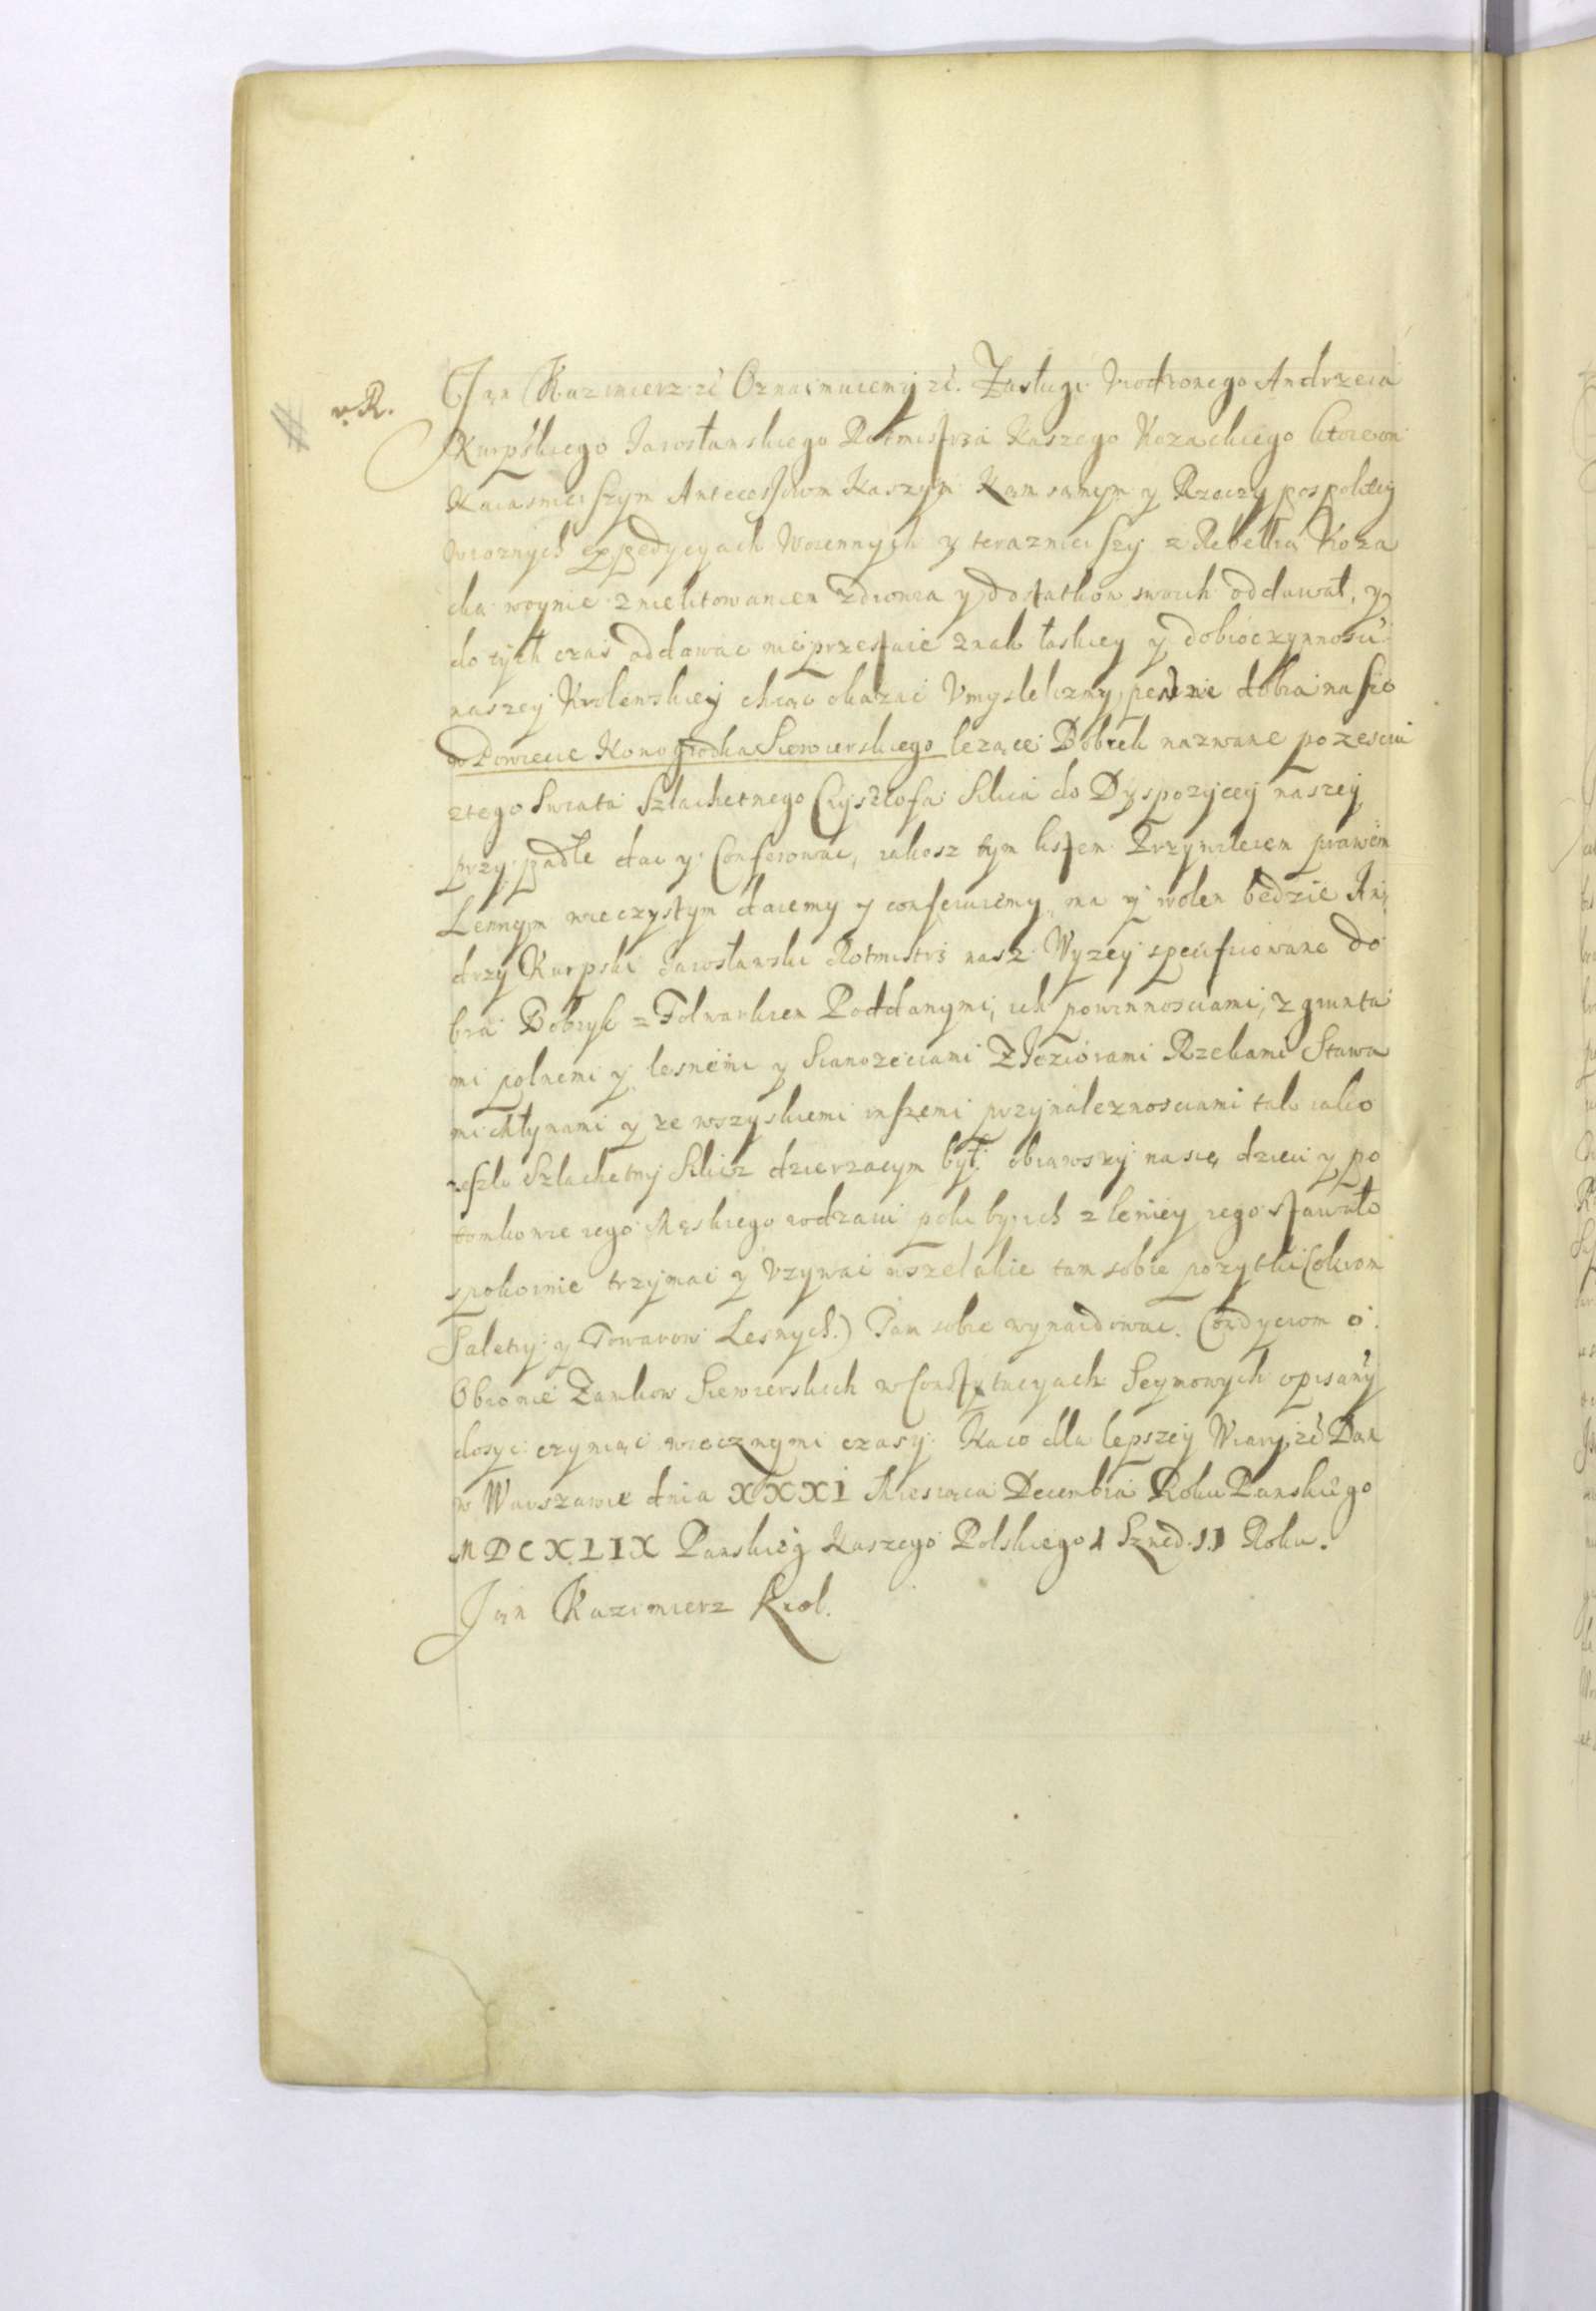 v. R.
Jan Kazimierz zč Oznaimuiemy zč. Zasługi Vrodzonego Andrzeia
Kurpskiego Jarosławskiego Rotmistrza Naszego Kozackiego ktore on
Naiasnieiszym Antecessorom Naszym Nam samym y Rzeczypospolitey
w roznych expedycyach Woiennych y teraznieiszy z Rebellią Koza
cką woynie z nielitowaniem zdrowia y dostatkow swoich oddawał, y
do tych czas oddawac nie przestaie znak łaskiey y dobroczynnosci
naszey Krolewskiey chcąc okazac Vmyslelizmy pewne dobra na sie
w Powiecie Nowogrodka Siewierskiego leżące Dobrek nazwane po zesciu
z tego Swiata Szlachetnego Crysztofa Silicza do Dyspozycey naszey
przypadłe dac y Conferowac, iakosz tym listem Przywileiem prawem
Lennym wieczystym daiemy y conferuiemy, ma y wolen będzie An
drzy Kurpski Jarosławski Rotmistrz nasz Wyzey specificowane do
bra Dobryk z Folwarkiem Poddanymi, ich powinnosciami, z grunta
mi polnemi y lesnemi y Sianozęciami Z Jeziorami Rzekami Stawa
mi Młynami y ze wszyskiemi inszemi przynaleznosciami tak iako
zeszły Szlachetny Silicz dzierzacym był obiąwszy na się dzieci y po
tomkowie iego Męskiego rodzaiu poki by ich z liniey iego stawało
spokoinie trzymac y Vzywac wszelakie tam sobie pozytki (okrom
Saletry y Towarow Lesnych.) Tam sobie wynaidowac. Condyciom o
Obronie Zamkow Siewierskich w Constytucyach Seymowych opisany
dosyc czyniąc wiecznymi czasy. Na co dla lepszey Wiary zč Dan
w Warszawie dnia XXXI Miesiąca Decembra Roku Panskiego
MDCXLIX Panskiey Naszego Polskiego 1 Szwed. 11 Roku.
Jan Kazimierz Krol.